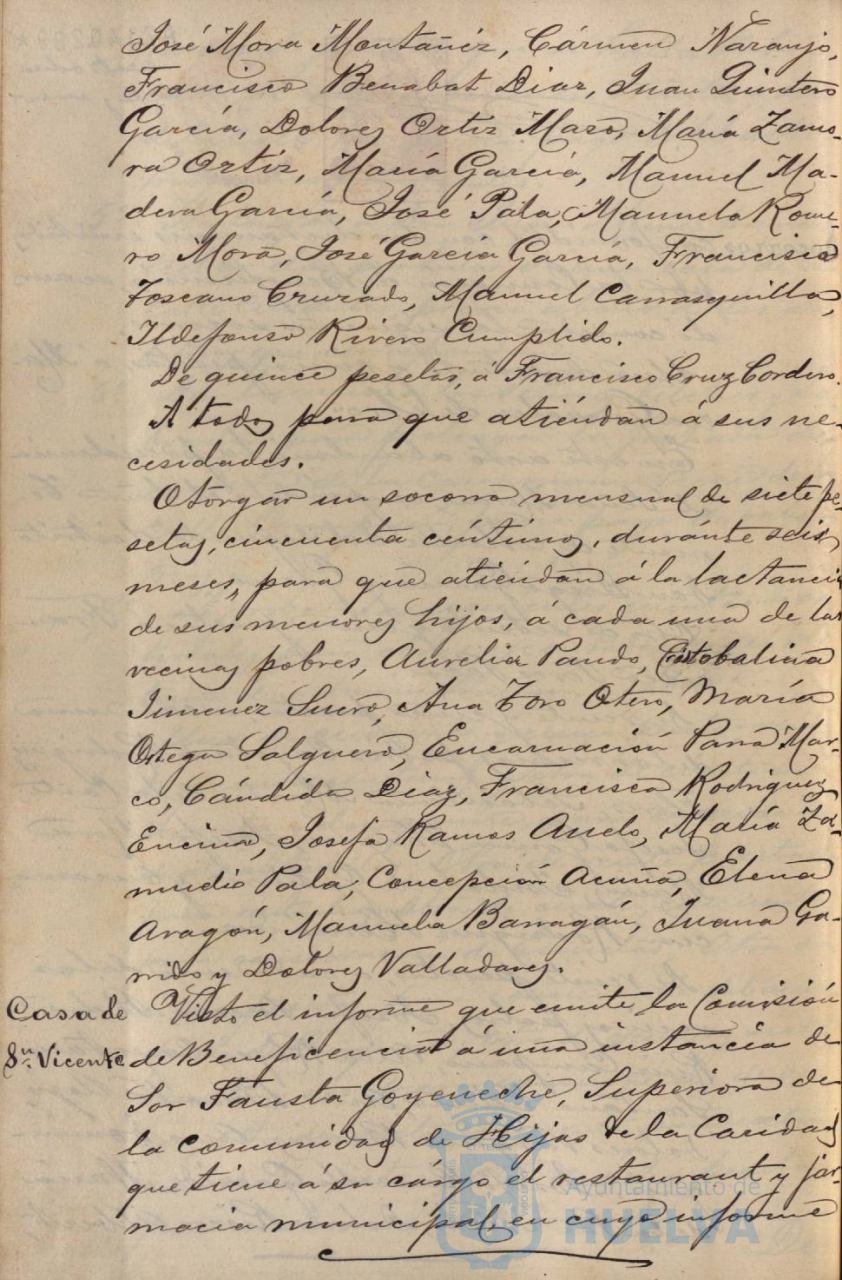 José Mora Montañéz, Cármen Naranjo,
Francisco Benabat Diaz, Juan Quintero
García, Dolores Ortiz Mazo, María Zamo-
ra Ortiz, María García, Manuel Ma-
dera García, José Pala, Manuela Rome-
ro Mora, José García García, Francisco
Toscano Cruzado, Manuel Carrasquilla,
Ildefonso Rivero Cumplido.
De quince pesetas, á Francisco Cruz Cordero.
A todos para que atiéndan á sus ne-
cesidades.
Otorgar un socorro mensual de siete pe-
setas, cincuenta céntimos, duránte seis
meses, para que atiéndan á la lactancia
de sus menores hijos, á cada una de las
vecinas pobres, Aurelia Pando, Cristobalina
Jimenez Suero, Ana Toro Otero, María
Ortega Salguero, Encarnación Parra Mar-
co, Cándida Diaz, Francisca Rodriguez
Encina, Josefa Ramos Anelo, María Za-
mudio Pala, Concepción Acuña, Elena
Aragón, Manuela Barragán, Juana Ga-
rrido y Dolores Valladares.
Casa de
Sn. Vicente
Visto el informe que emite la Comisión
de Beneficencia á una instancia de
Sor Fausta Goyeneche, Superiora de
la comunidad de Hijas de la Caridad
que tiene á su cárgo el restaurant y far-
macia municipal, en cuyo informe
Ayuntamiento de
HUELVA